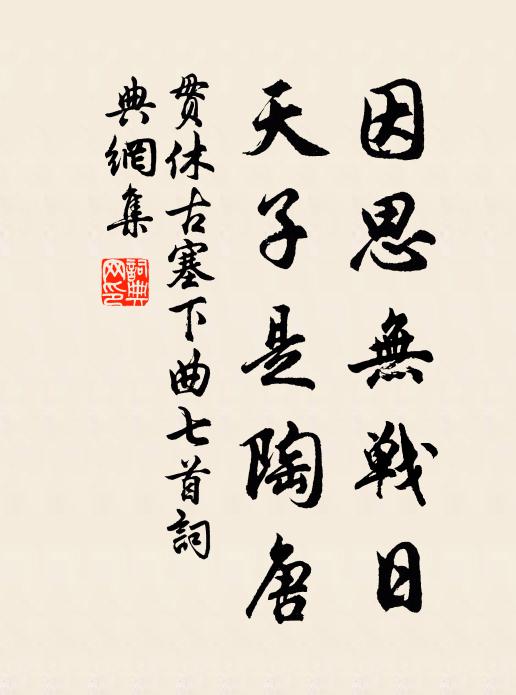 因思無戦日
天子是陶唐
貫休古塞下曲七首詞
典網集
詞典網印